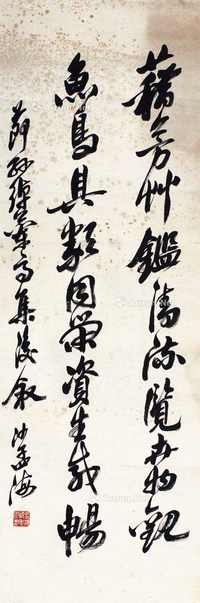 藉芳艸鑑清流覽卉物觀
魚鳥具類同榮資生咸暢
節孫綽蘭亭集後叙 沙孟海